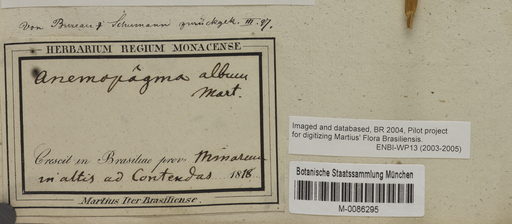 von Bureau & Schumann zurückgek. III. 97.
HERBARIUM REGIUM MONACENSE.
Anemopägma album
Mart.
Crescit in Brasiliae prov. Minarum
in altis ad Contendas 1818
Martius Iter Brasiliense.
Imaged and databased, BR 2004, Pilot project
for digitizing Martius' Flora Brasiliensis.
ENBI-WP13 (2003-2005)
Botanische Staatssammlung München
M-0086295